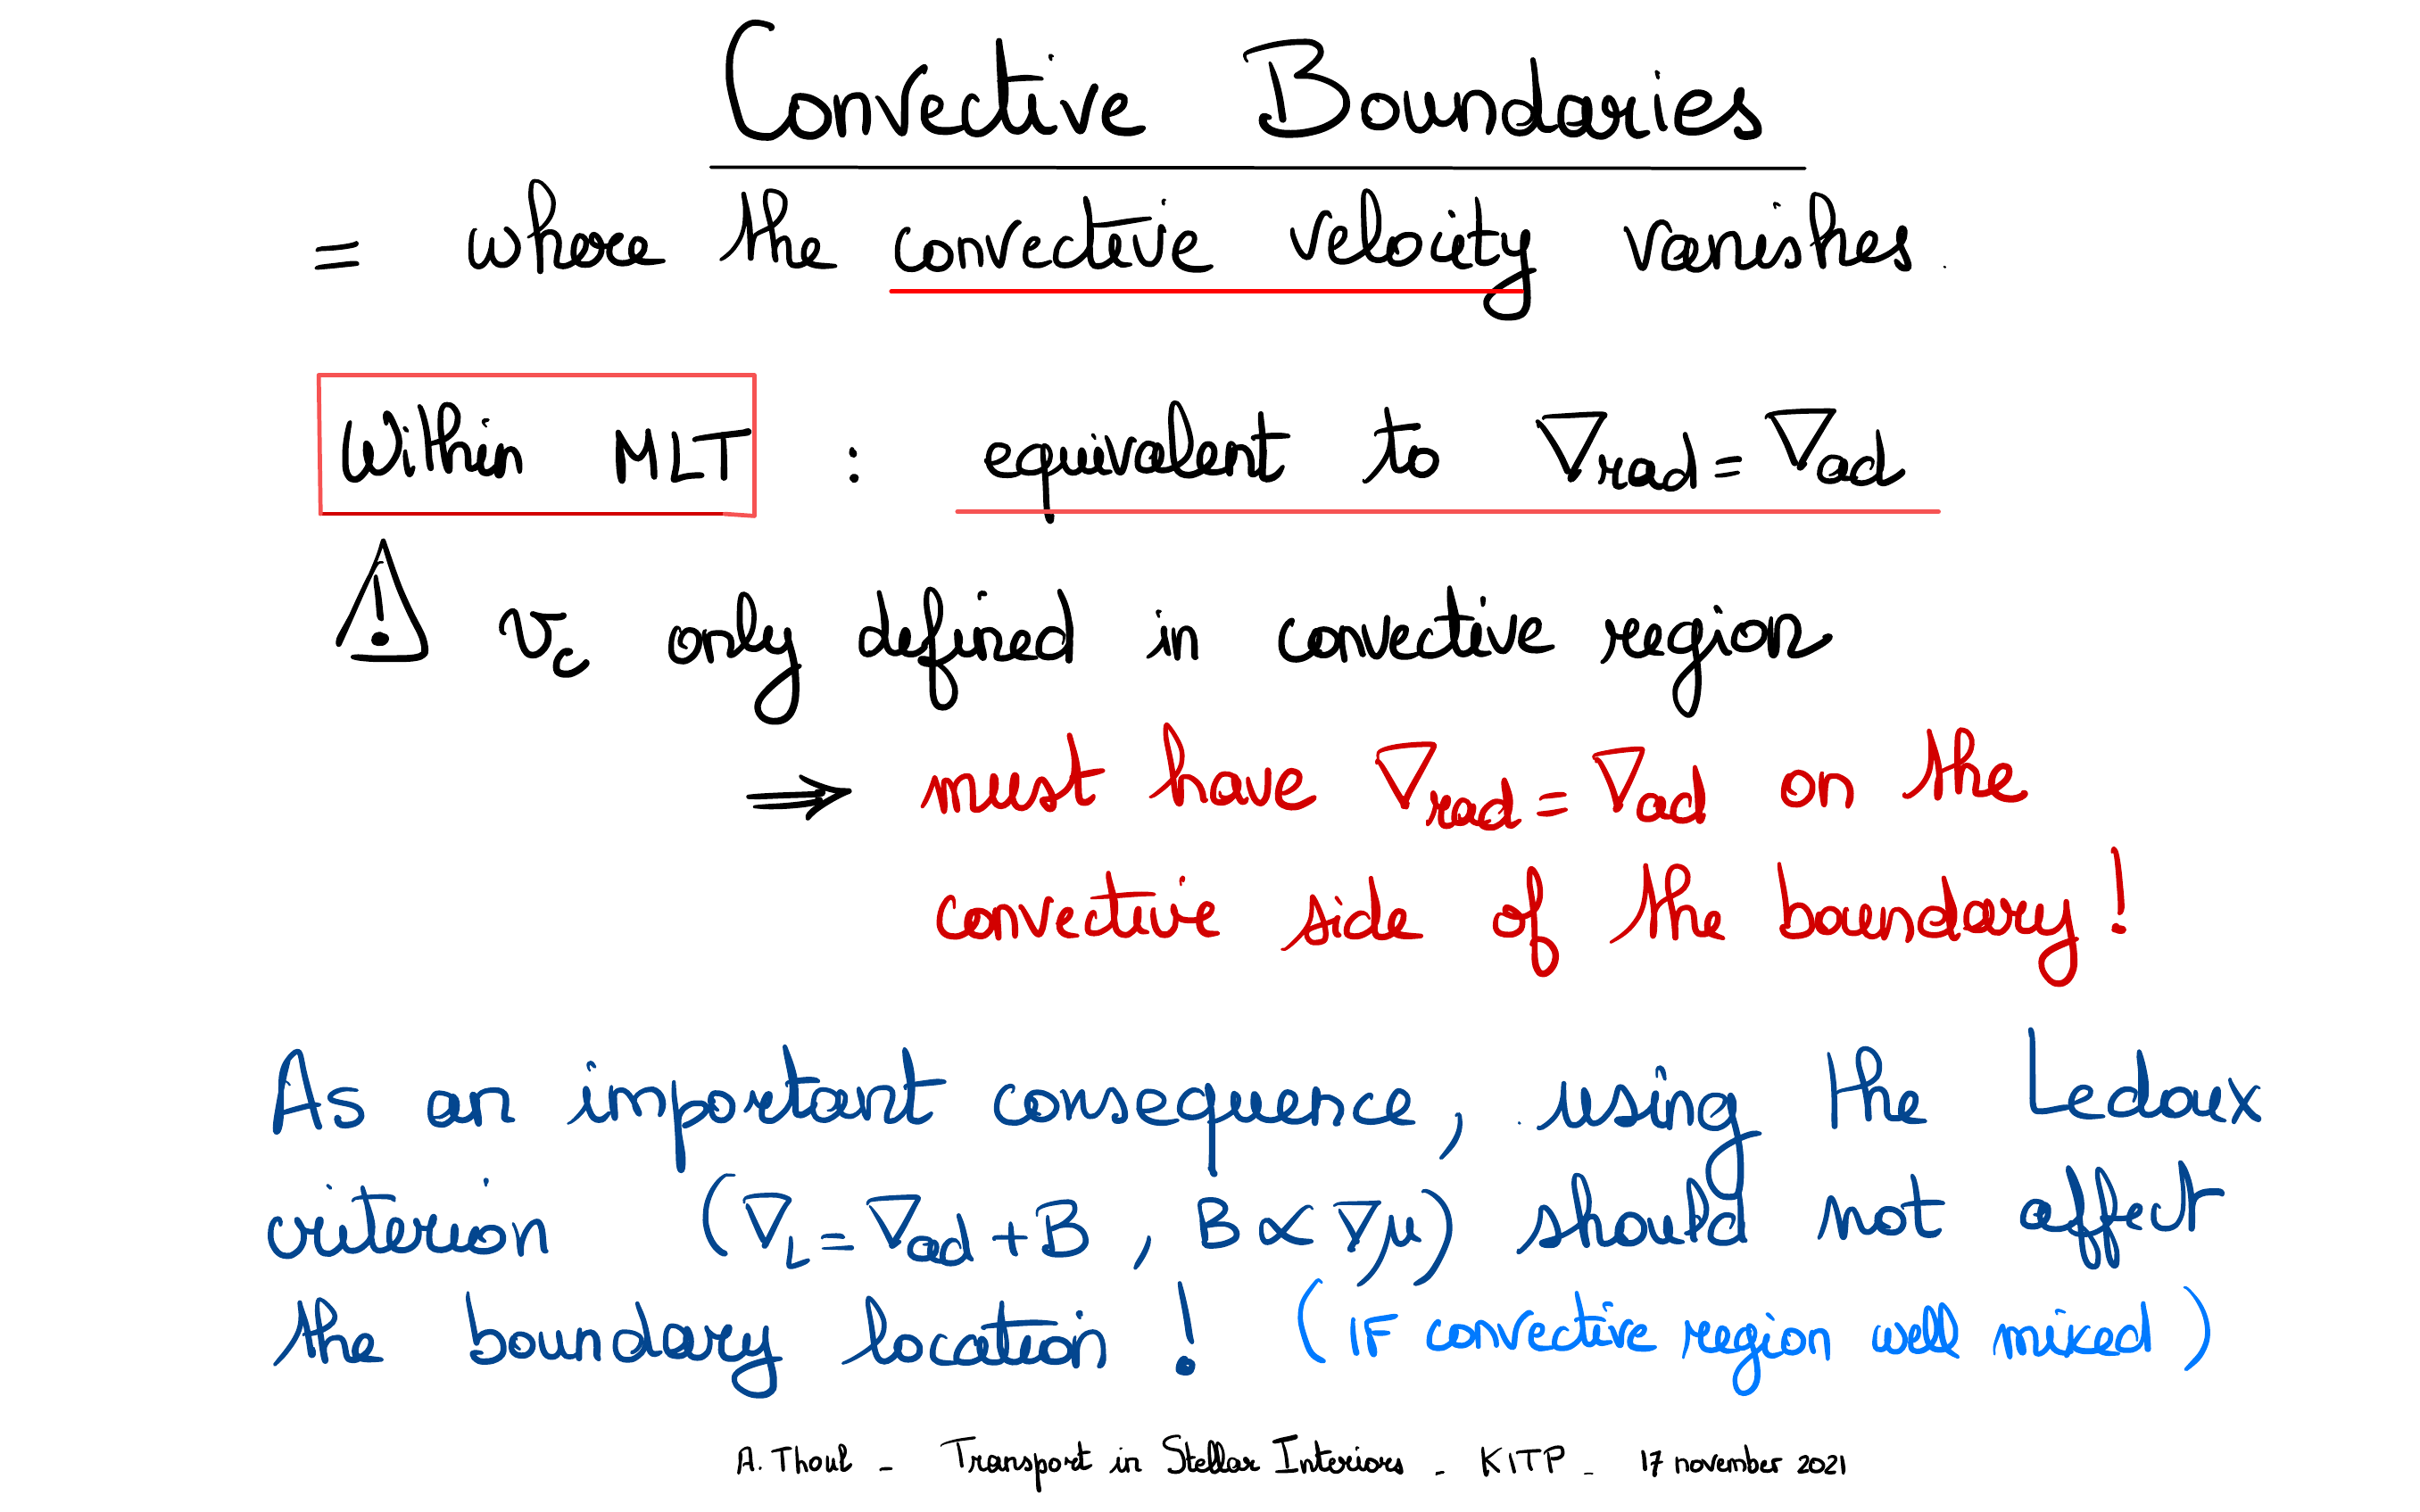 Convective Boundaries
= where the convective velocity vanishes.
Within MLT : equivalent to ∇rad = ∇ad
! vc only defined in convective region
⇒ must have ∇rad = ∇ad on the
convective side of the boundary!
As an important consequence, using the Ledoux
criterion (∇L = ∇ad + B, B ∝ ∇μ) should not affect
the boundary location! (IF convective region well mixed)
A. Thoul - Transport in Stellar Interiors - KITP - 17 november 2021